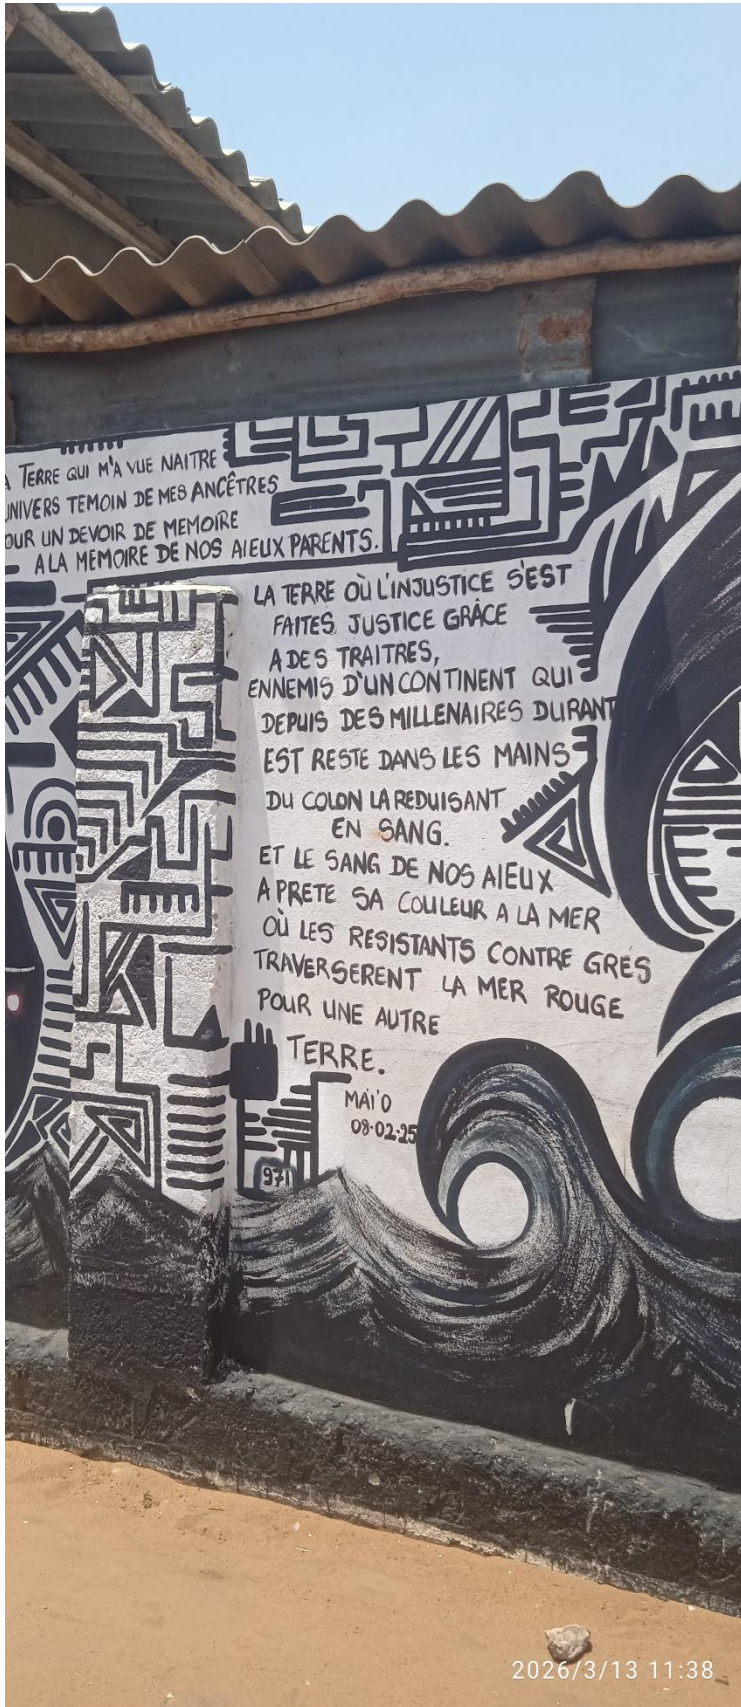 TERRE QUI M'A VUE NAITRE
UNIVERS TEMOIN DE MES ANCÊTRES
OUR UN DEVOIR DE MEMOIRE
A LA MEMOIRE DE NOS AIEUX PARENTS.
LA TERRE OÙ L'INJUSTICE S'EST
FAITES JUSTICE GRÂCE
A DES TRAITRES,
ENNEMIS D'UN CONTINENT QUI
DEPUIS DES MILLENAIRES DURANT
EST RESTE DANS LES MAINS
DU COLON LA REDUISANT
EN SANG.
ET LE SANG DE NOS AIEUX
A PRETE SA COULEUR A LA MER
OÙ LES RESISTANTS CONTRE GRÉS
TRAVERSERENT LA MER ROUGE
POUR UNE AUTRE
TERRE.
MAÏ'O
08-02-25
971
2026/3/13 11:38